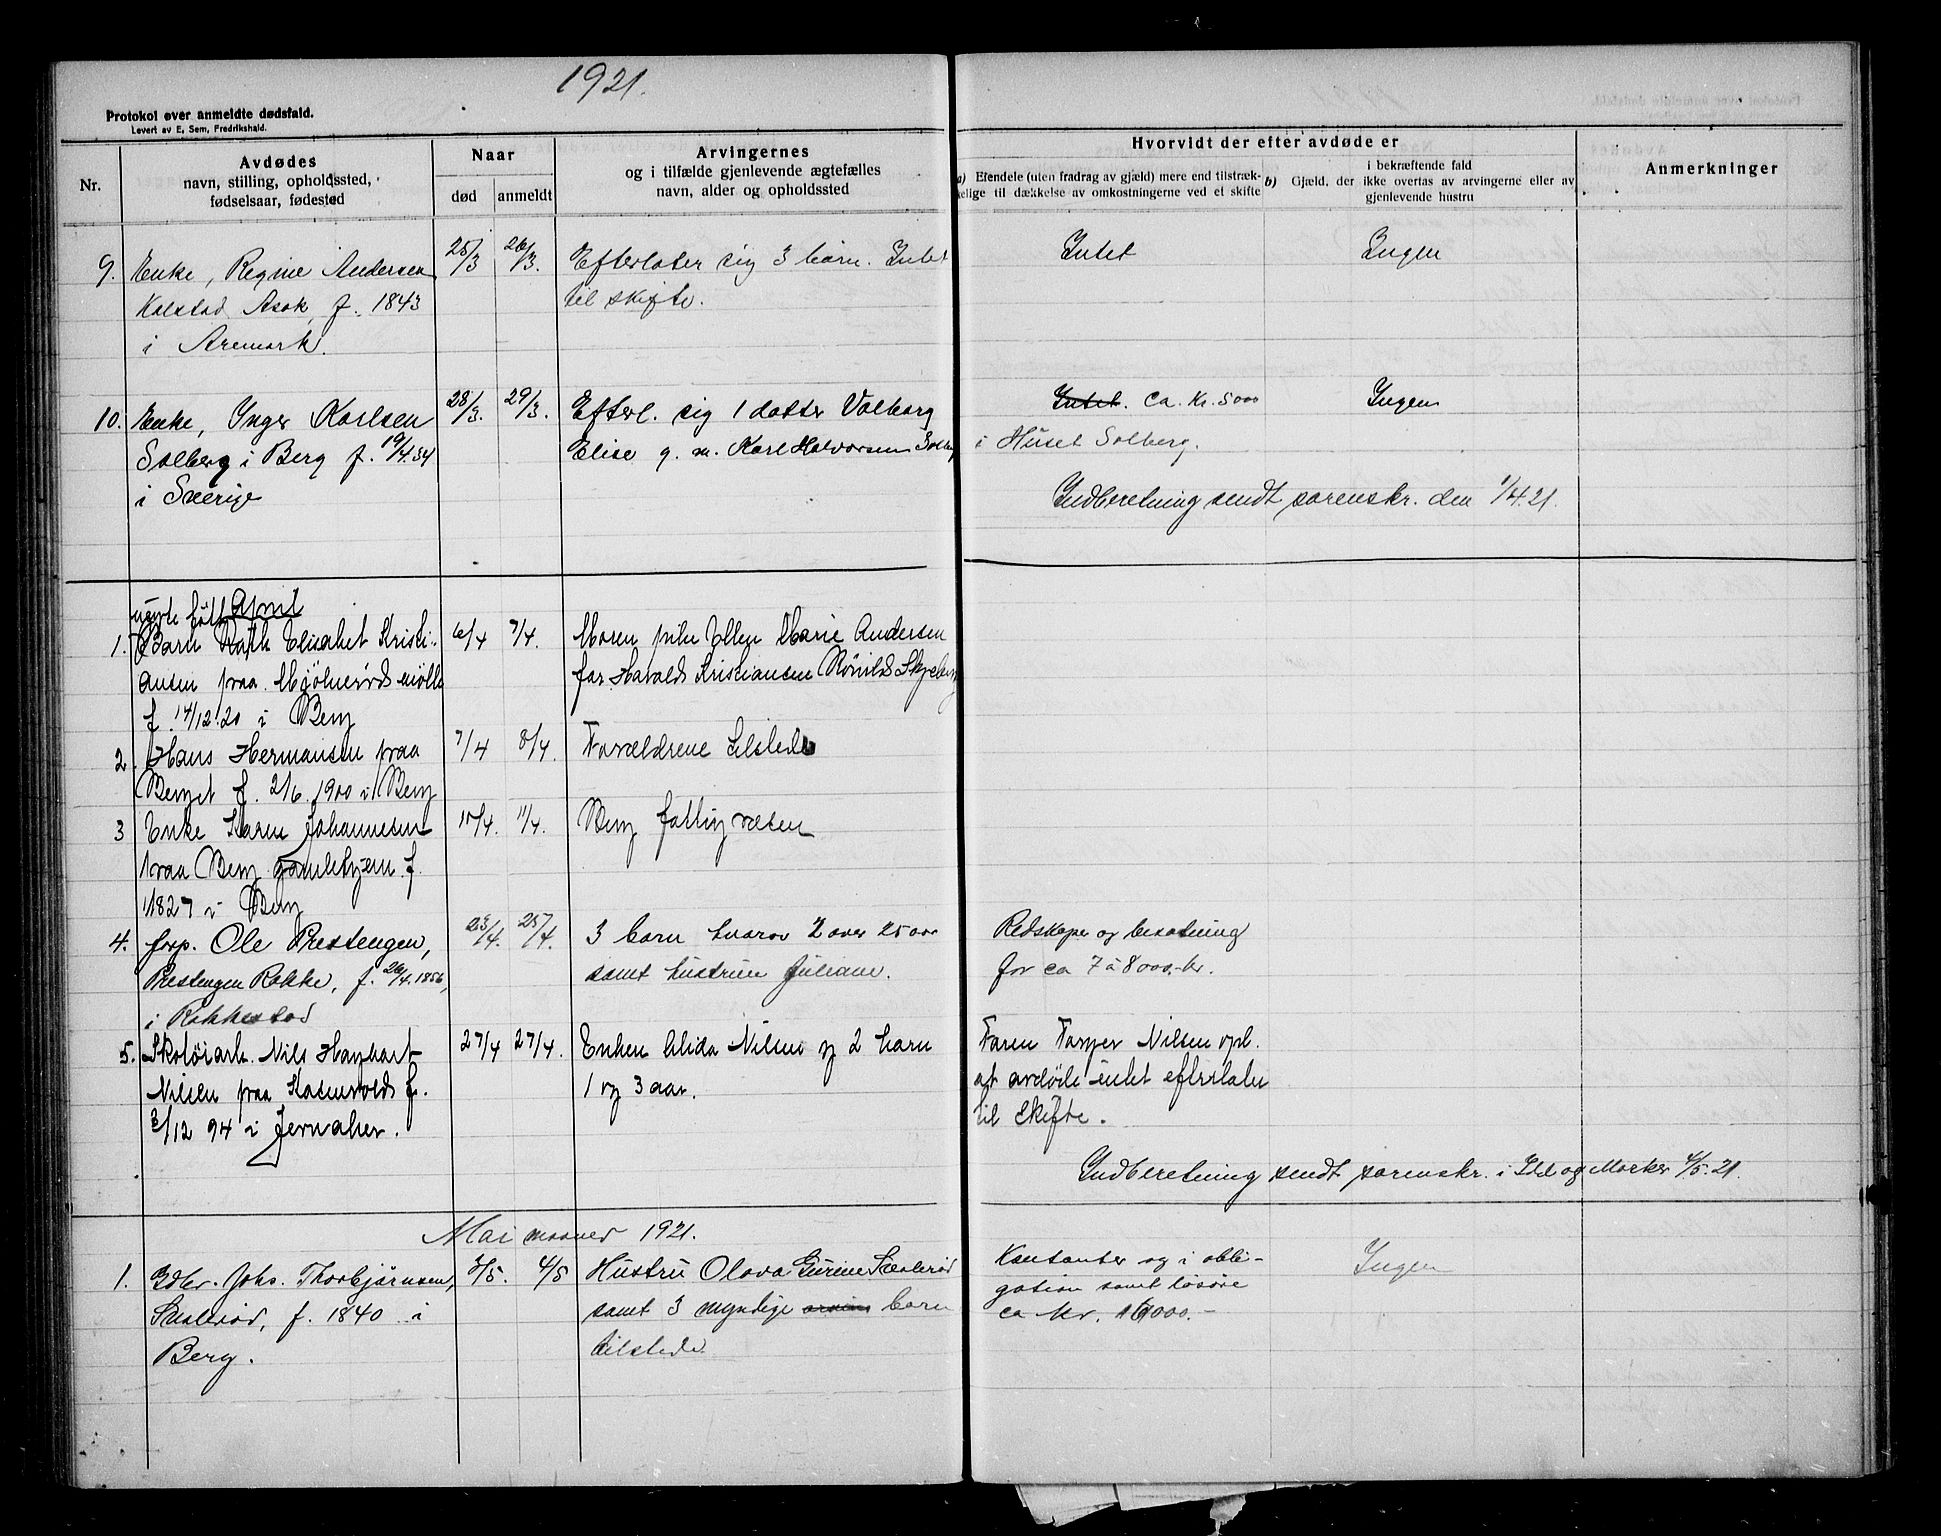 1921.
Protokol over anmeldte dødsfald.
Levert av E. Sem, Fredrikshald.
Nr.
Avdødes
navn, stilling, opholdssted,
fødselsaar, fødested
Naar
død
anmeldt
Arvingernes
og i tilfælde gjenlevende ægtefælles
navn, alder og opholdssted
Hvorvidt der efter avdøde er
a) Eiendele (uten fradrag av gjæld) mere end tilstræk-
kelige til dækkelse av omkostningerne ved et skifte
b) Gjæld, der i bekræftende fald
ikke overtas av arvingerne eller av
gjenlevende hustru
Anmerkninger
9. Enke, Regine Andersen
Kalstad Asak, f. 1843
i Aremark.
25/3
26/3.
Efterlater sig 3 barn. Intet
til skifte.
Intet
Ingen
10. Enke, Inger Karlsen
Solberg i Berg f. 19/4.34
i Sverige
28/3.
29/3.
Efterl. sig 1 datter Valborg
Elise g. m. Karl Halvorsen Solberg
Intet. ca. kr. 5000
i Huset Solberg.
Ingen
Indberetning sendt sorenskr. den 1/4.21.
April
1. Barn Ruth Elisabet Kristi-
ansen paa
f. 14/12.20 i Berg
6/4
7/4.
Moren Ellen Marie Andersen
far Harald Kristiansen Skjeberg
2. Hans Hermansen paa
Berget f. 2/6. 1900 i Berg
7/4
8/4.
Forældrene tilstede
3 Enke Karen Johannesen
paa Berg gamlehjem f.
1827 i Berg
10/4.
11/4.
Berg fattigvæsen
4. forp. Ole Prestengen,
Prestengen Rokke, f. 26/4.1856,
i Rakkestad
23/4.
25/4.
3 barn hvorav 2 over 25 aar
samt hustruen Juliane.
Redskaper og besætning
for ca 7 à 8000.-kr.
5. Skotøiarb. Nils Haghart
Nilsen paa f.
3/12 94 i
27/4
27/4.
Enken Alida Nilsen og 2 barn
1 og 3 aar.
Faren Nilsen opl.
at avdøde intet efterlater
til Skifte.
Indberetning sendt sorenskr. i Idd og Marker 4/5.21.
Mai maaned 1921.
1. Gdbr. Johs. Thorbjørnsen,
f. 1840 i
Berg.
3/5.
4/5
Hustru Olava Gurine
samt 3 myndige barn
tilstede.
Kontanter og i obli-
gation samt løsøre
ca kr. 16000.-
Ingen